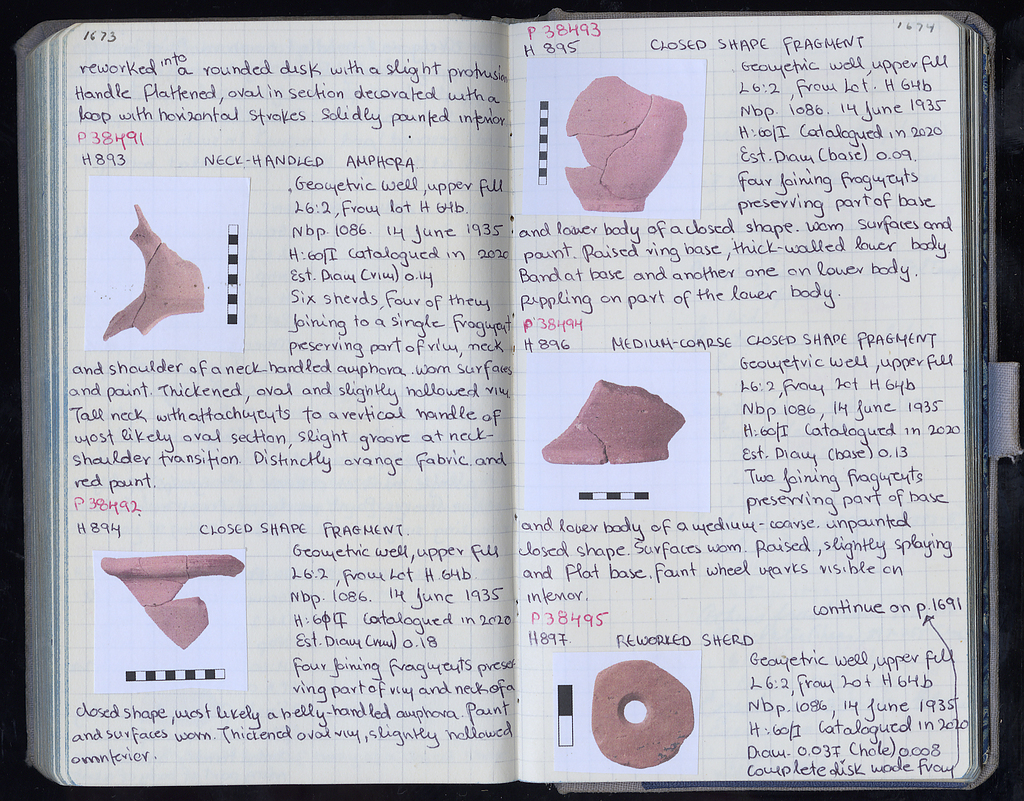 1673
reworked into a rounded disk with a slight protrusion
Handle flattened, oval in section decorated with a
loop with horizontal strokes. Solidly painted interior.
P 38491
H 893 NECK-HANDLED AMPHORA
Geometric well, upper fill
L6:2, from lot H 64b.
Nbp. 1086. 14 June 1935
H:60/I Catalogued in 2020
Est. Diam (rim) 0.14
Six sherds, four of them
joining to a single fragment
preserving part of rim, neck
and shoulder of a neck handled amphora. Worn surfaces
and paint. Thickened, oval and slightly hollowed rim.
Tall neck with attachments to a vertical handle of
most likely oval section, slight groove at neck-
shoulder transition. Distinctly orange fabric and
red paint.
P 38492
H 894 CLOSED SHAPE FRAGMENT.
Geometric well, upper fill
L6:2, from Lot H 64b.
Nbp. 1086. 14 June 1935
Catalogued in 2020
Est. Diam (rim) 0.18
Four joining fragments preser-
ving part of rim and neck of a
closed shape, most likely a belly-handled amphora. Paint
and surfaces worn. Thickened oval rim, slightly hollowed
on interior.
1674
P 38493
H 895 CLOSED SHAPE FRAGMENT
Geometric well, upper fill
L6:2, from Lot. H 64b
Nbp. 1086. 14 June 1935
H:60/I Catalogued in 2020
Est. Diam (base) 0.09.
Four joining fragments
preserving part of base
and lower body of a closed shape. Worn surfaces and
paint. Raised ring base, thick-walled lower body.
Band at base and another one on lower body.
Rippling on part of the lower body.
P 38494
H 896 MEDIUM-COARSE CLOSED SHAPE FRAGMENT
Geometric well, upper fill
L6:2, from Lot H 64b
Nbp 1086, 14 June 1935
H:60/I Catalogued in 2020
Est. Diam (base) 0.13
Two joining fragments
preserving part of base
and lower body of a medium-coarse. unpainted
closed shape. Surfaces worn. Raised, slightly splaying
and flat base. Faint wheel marks visible on
interior.
continue on p. 1691
P 38495
H 897. REWORKED SHERD
Geometric well, upper fill
L6:2, from Lot H 64b
Nbp. 1086, 14 June 1935
H:60/I Catalogued in 2020
Diam. (hole) 0.008
Complete disk made from